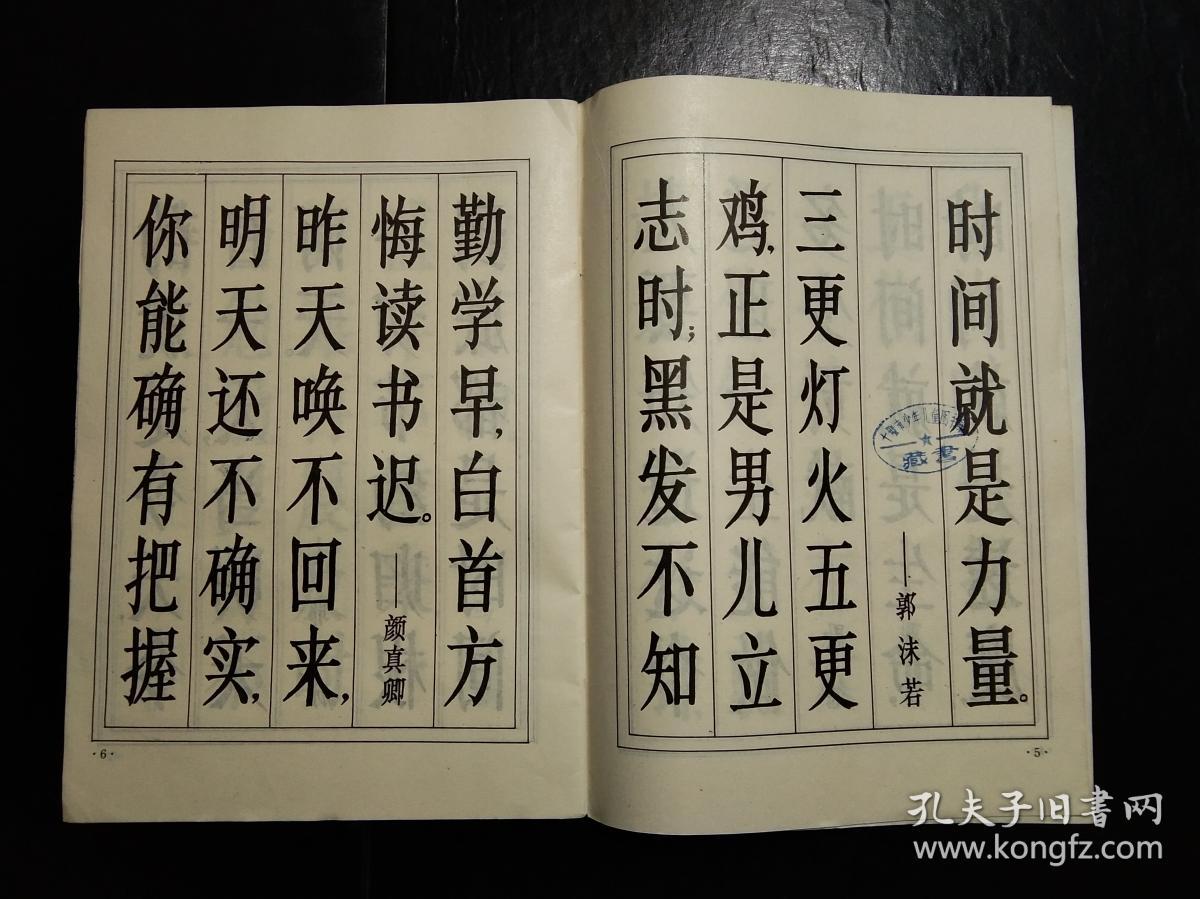 时间就是力量。
——郭沫若
三更灯火五更
鸡，正是男儿立
志时；黑发不知
·5·
勤学早，白首方
悔读书迟。——颜真卿
昨天唤不回来，
明天还不确实，
你能确有把握
·6·
藏書
孔夫子旧书网
www.kongfz.com